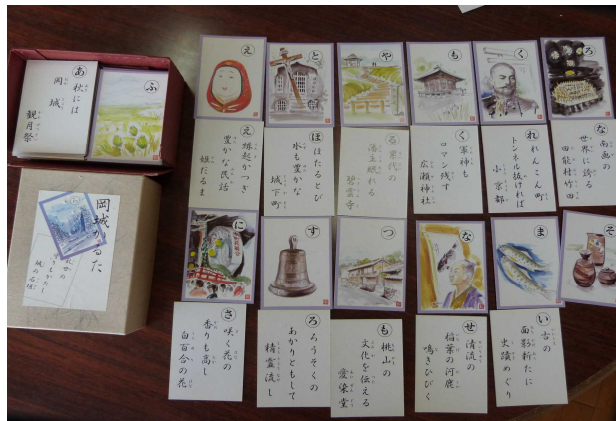 あ
秋には
岡城
観月祭
ふ
え
と
や
も
く
ろ
え
縁起かつぎ
豊かな民話
姫だるま
ほ
ほたるとび
水も豊かな
城下町
る
累代の
藩主眠れる
碧雲寺
く
軍神も
ロマン残す
広瀬神社
れ
れんこん町
トンネル抜ければ
小京都
な
南画の
世界に誇る
田能村竹田
岡城かるた
城の石垣
に
す
つ
な
ま
そ
さ
咲く花の
香りも高し
白百合の花
ろ
ろうそくの
あかりともして
精霊流し
も
桃山の
文化を伝える
愛染堂
せ
清流の
稲葉の河鹿
鳴きひびく
い
古の
面影新たに
史蹟めぐり